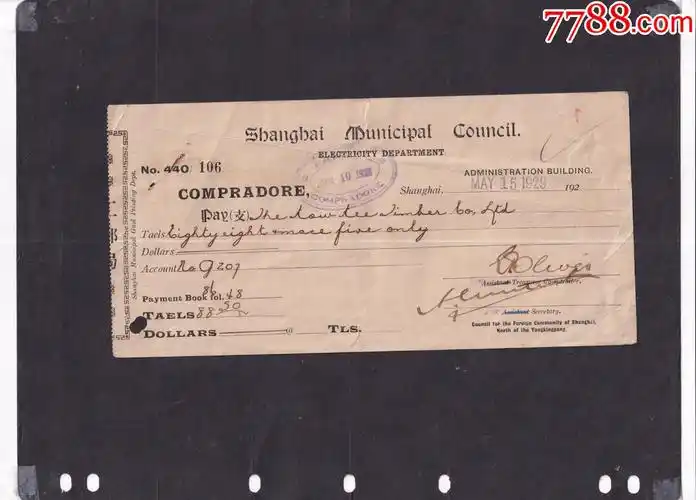 7788.com
Shanghai Municipal Council.
ELECTRICITY DEPARTMENT
No. 440/ 106
ADMINISTRATION BUILDING.
COMPRADORE,
19 1929
COMPRADORE
Shanghai, MAY 15 1929 192
Pay (支) The Law Kee Timber Co, Ltd
Taels Eighty eight & mace five only
Dollars
Account No 9207
Payment Book fol. 48
TAELS 88.50
DOLLARS @ TLS.
Assistant Treasurer Comptroller,
Assistant Secretary.
Council for the Foreign Community of Shanghai,
North of the Yangkingpang.
Shanghai Municipal Gaol Printing Dept.